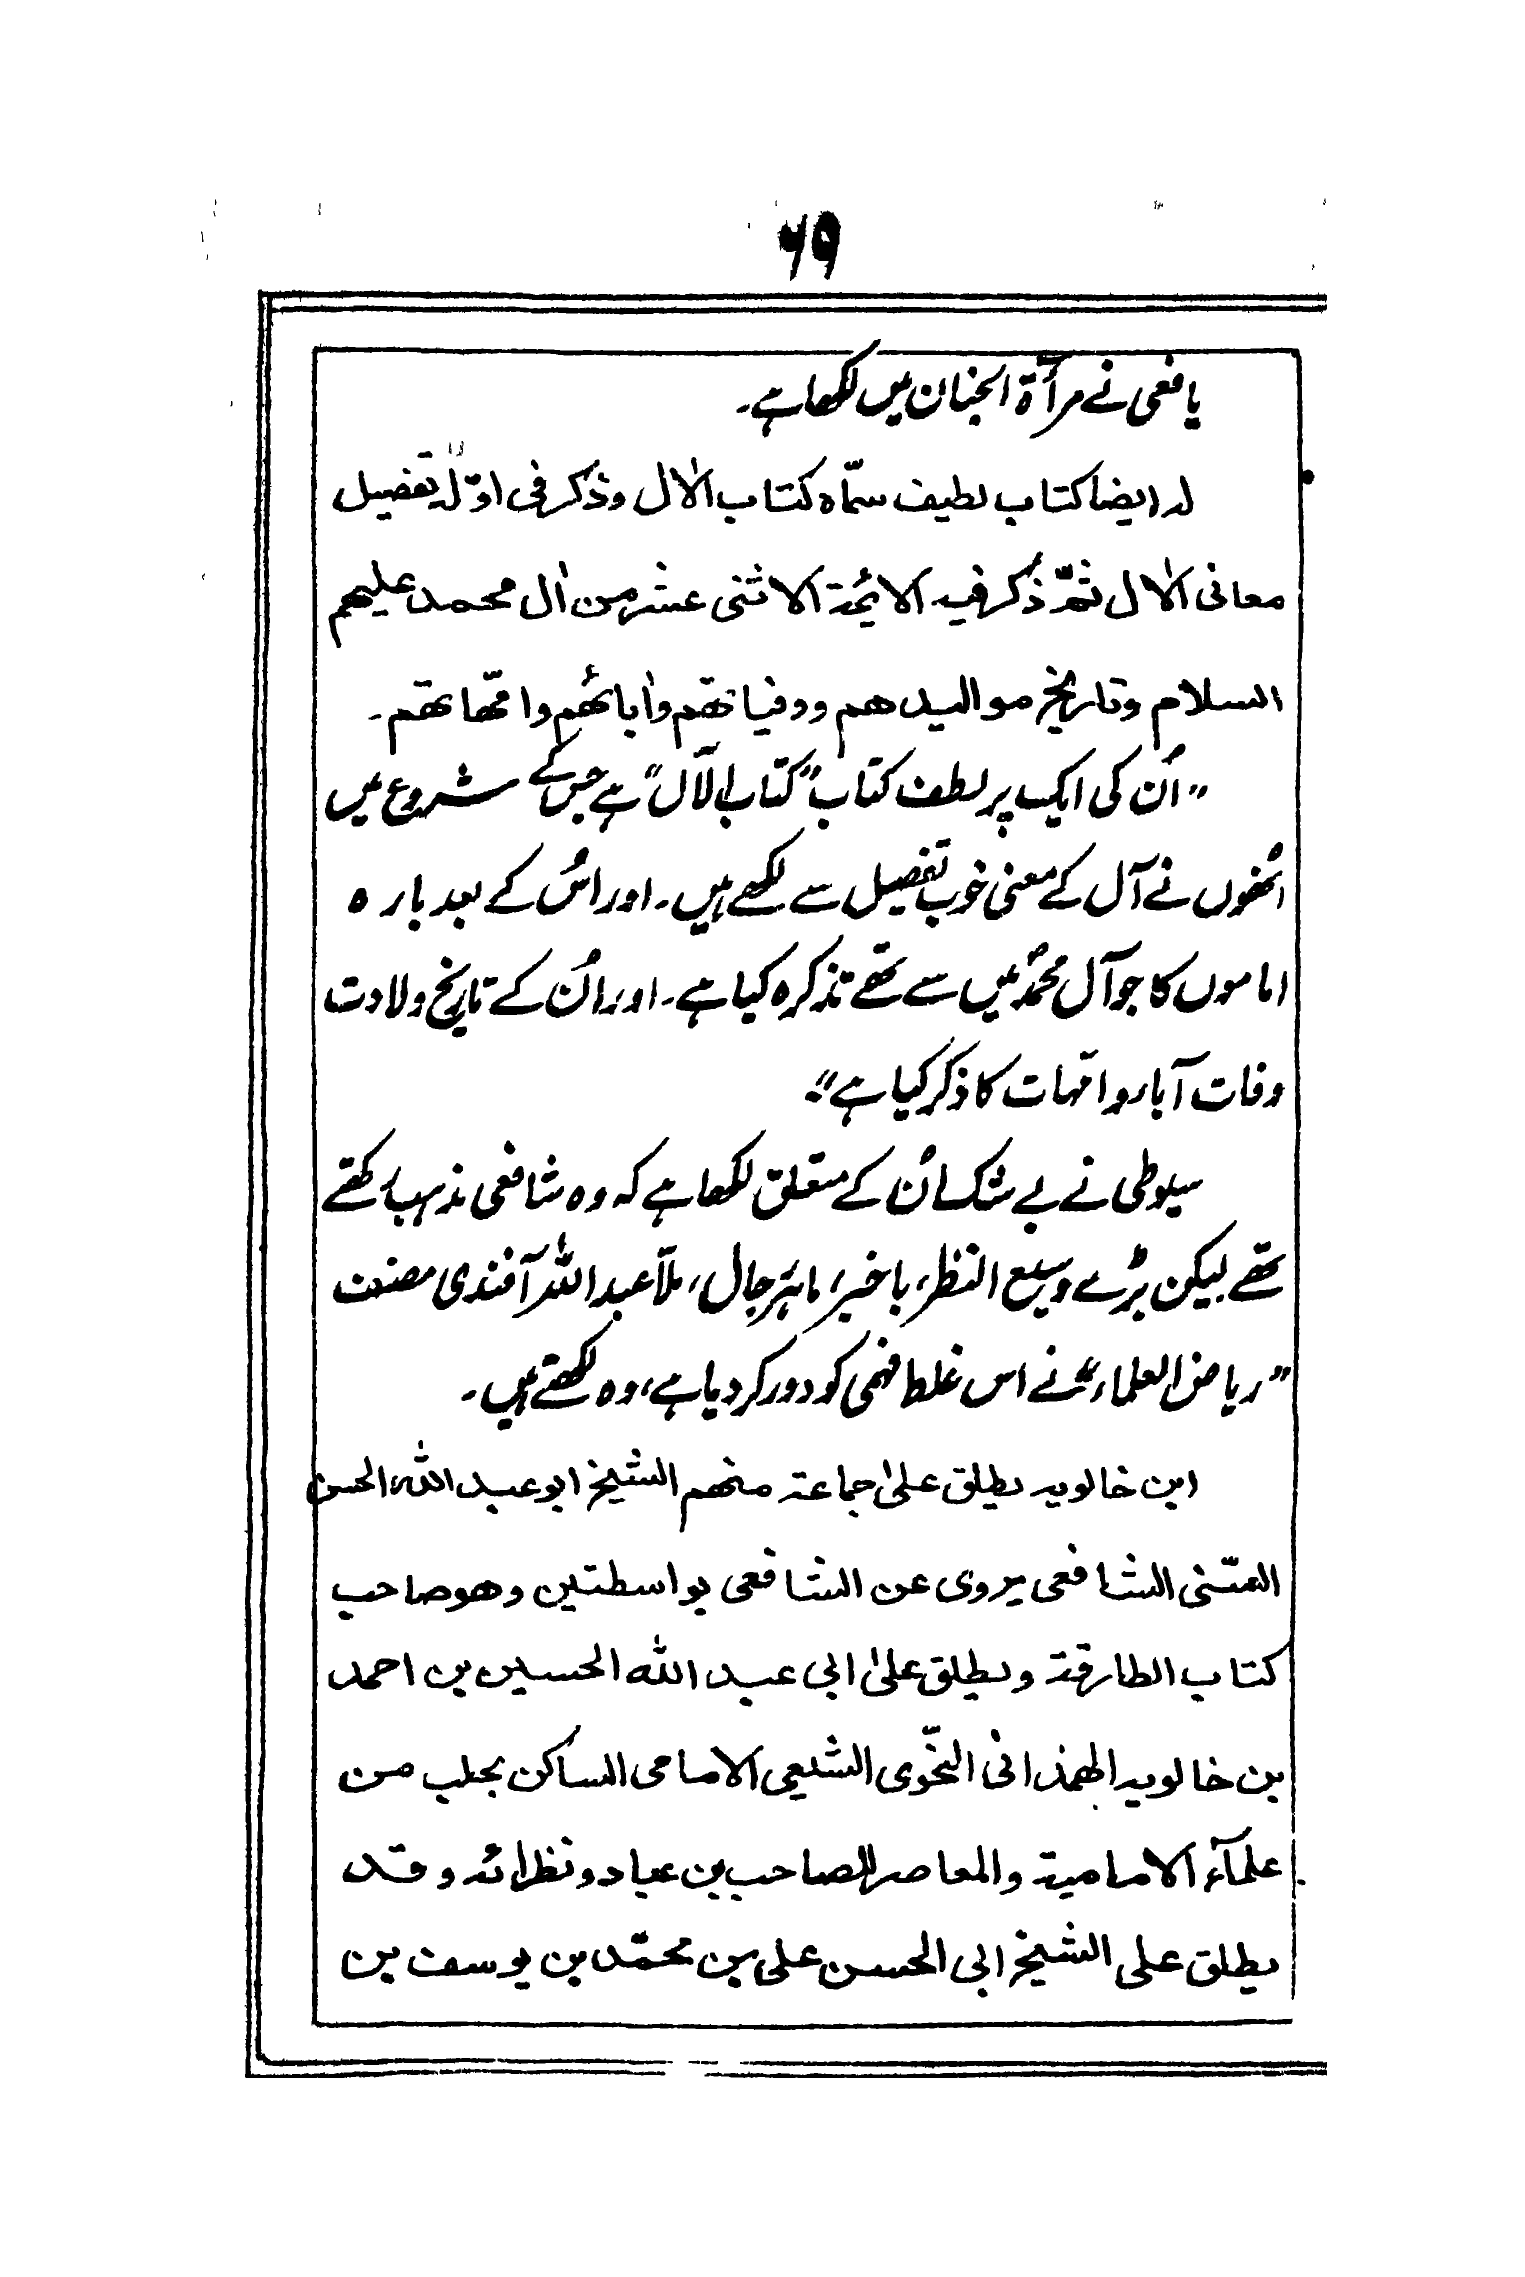 ۶۹
یافعی نے مرآۃ الجنان میں لکھا ہے۔
لہ ایضا کتاب لطیف سمّاہ کتاب الاٰل وذکر فی اوّلہ تفضیل
معانی الاٰل ثمّ ذکر فیہ الائمۃ الاثنی عشر من اٰل محمد علیھم
السلام وتاریخ موالیدھم ووفیاتھم واٰبائھم وامّھاتھم۔
"اُن کی ایک پر لطف کتاب "کتاب الآل" ہے جس کے شروع میں
اُنھوں نے آل کے معنی خوب تفصیل سے لکھے ہیں۔ اور اُس کے بعد بارہ
اماموں کا جو آل محمدؐ میں سے تھے تذکرہ کیا ہے۔ اور اُن کے تاریخ ولادت
وفات آباء و امّہات کا ذکر کیا ہے"۔
سیوطی نے بے شک اُن کے متعلق لکھا ہے کہ وہ شافعی مذہب رکھتے
تھے لیکن بڑے وسیع النظر، باخبر، ماہر رجال، ملّا عبد اللہ آفندی مصنف
"ریاض العلماء" نے اس غلط فہمی کو دور کر دیا ہے، وہ لکھتے ہیں۔
ابن خالویہ یطلق علیٰ جماعۃ منھم الشیخ ابو عبد اللہ الحسن
السّنی الشافعی یروی عن الشافعی بواسطتین وھو صاحب
کتاب الطارقۃ ویطلق علیٰ ابی عبد اللہ الحسین بن احمد
بن خالویہ الھمذانی النحّوی الشیعی الامامی الساکن بحلب من
علمآء الامامیۃ والمعاصر للصاحب بن عباد ونظرائہ وقد
یطلق علی الشیخ ابی الحسن علی بن محمّد بن یوسف بن